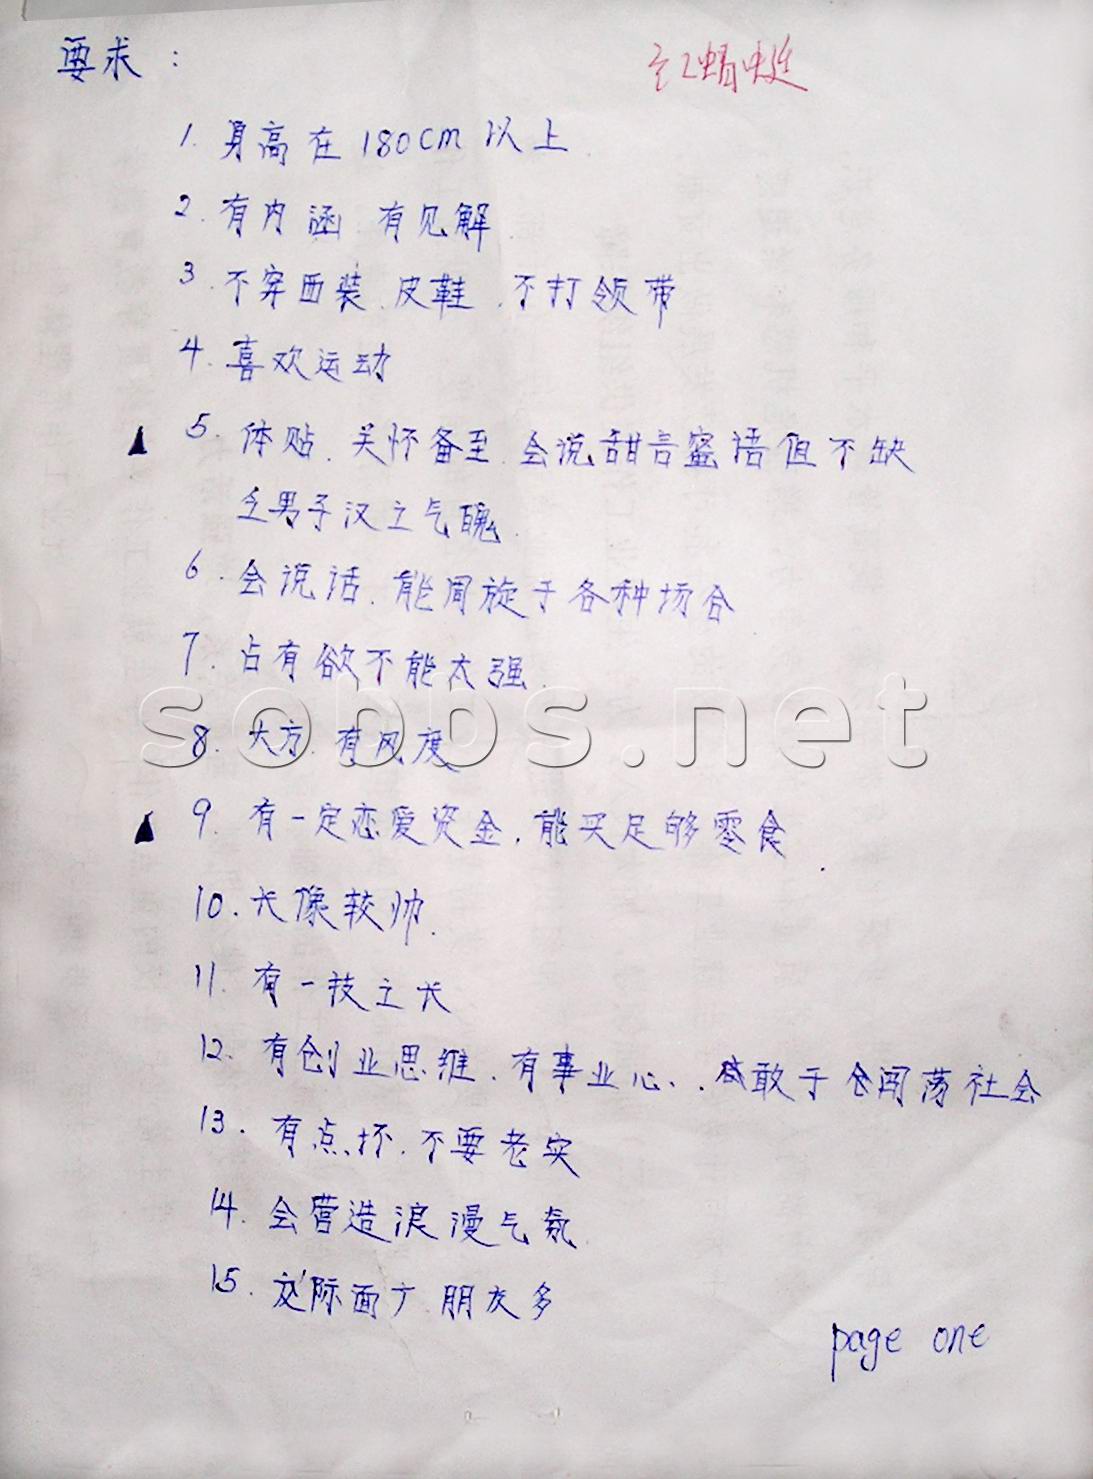 要求：
红蜻蜓
1. 身高在180cm以上.
2. 有内涵 有见解.
3. 不穿西装、皮鞋、不打领带
4. 喜欢运动
5. 体贴、关怀备至、会说甜言蜜语但不缺
乏男子汉之气魄.
6. 会说话、能周旋于各种场合
7. 占有欲不能太强.
sobbs.net
8. 大方、有风度
9. 有一定恋爱资金，能买足够零食.
10. 长像较帅.
11. 有一技之长
12. 有创业思维、有事业心、敢于闯荡社会
13. 有点坏、不要老实
14. 会营造浪漫气氛.
15. 交际面广 朋友多
page one